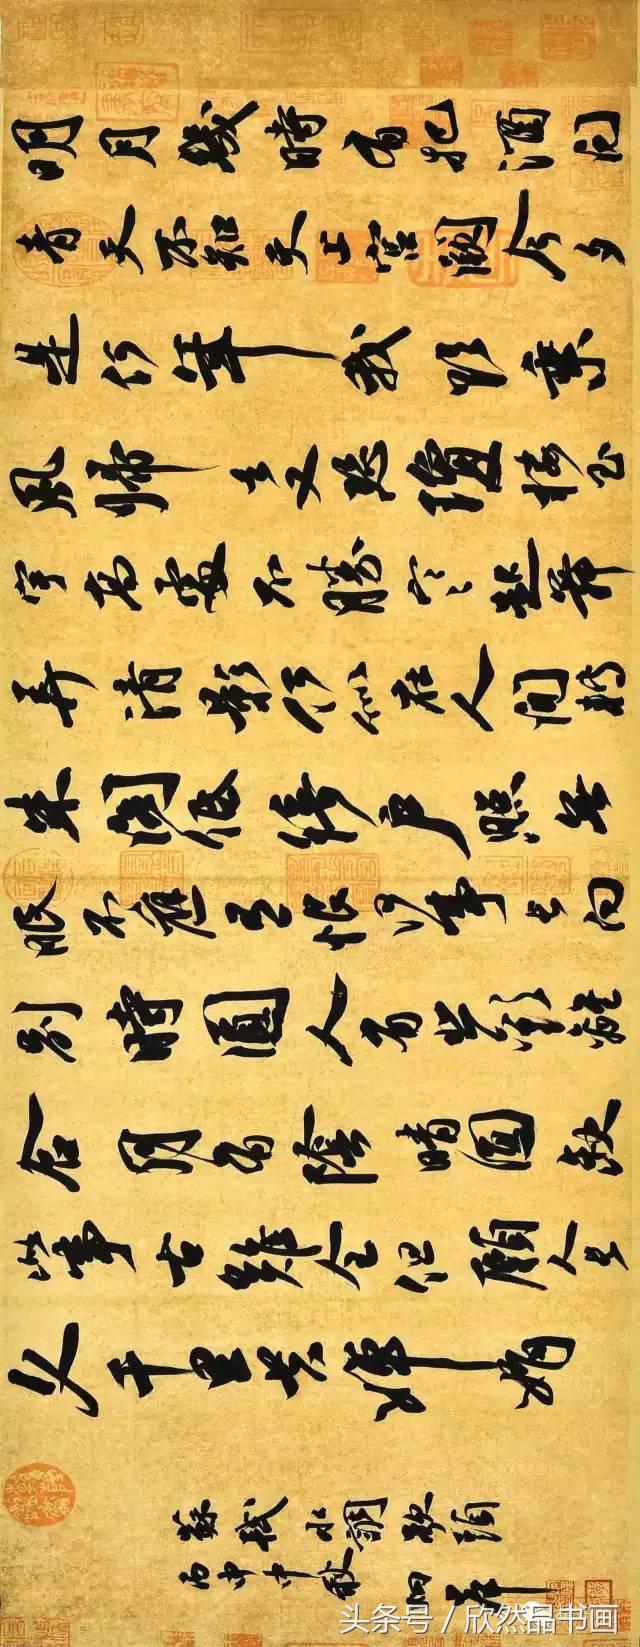 明月幾時有把酒問
青天不知天上宮闕今夕
是何年我欲乘
風歸去又恐瓊樓玉
宇高處不勝寒起舞
弄清影何似在人間轉
朱閣低綺戶照無
眠不應有恨何事長向
別時圓人有悲歡離
合月有陰晴圓缺
此事古難全但願人長
久千里共嬋娟
蘇軾水調歌頭
丙申中秋
头条号/欣然品书画